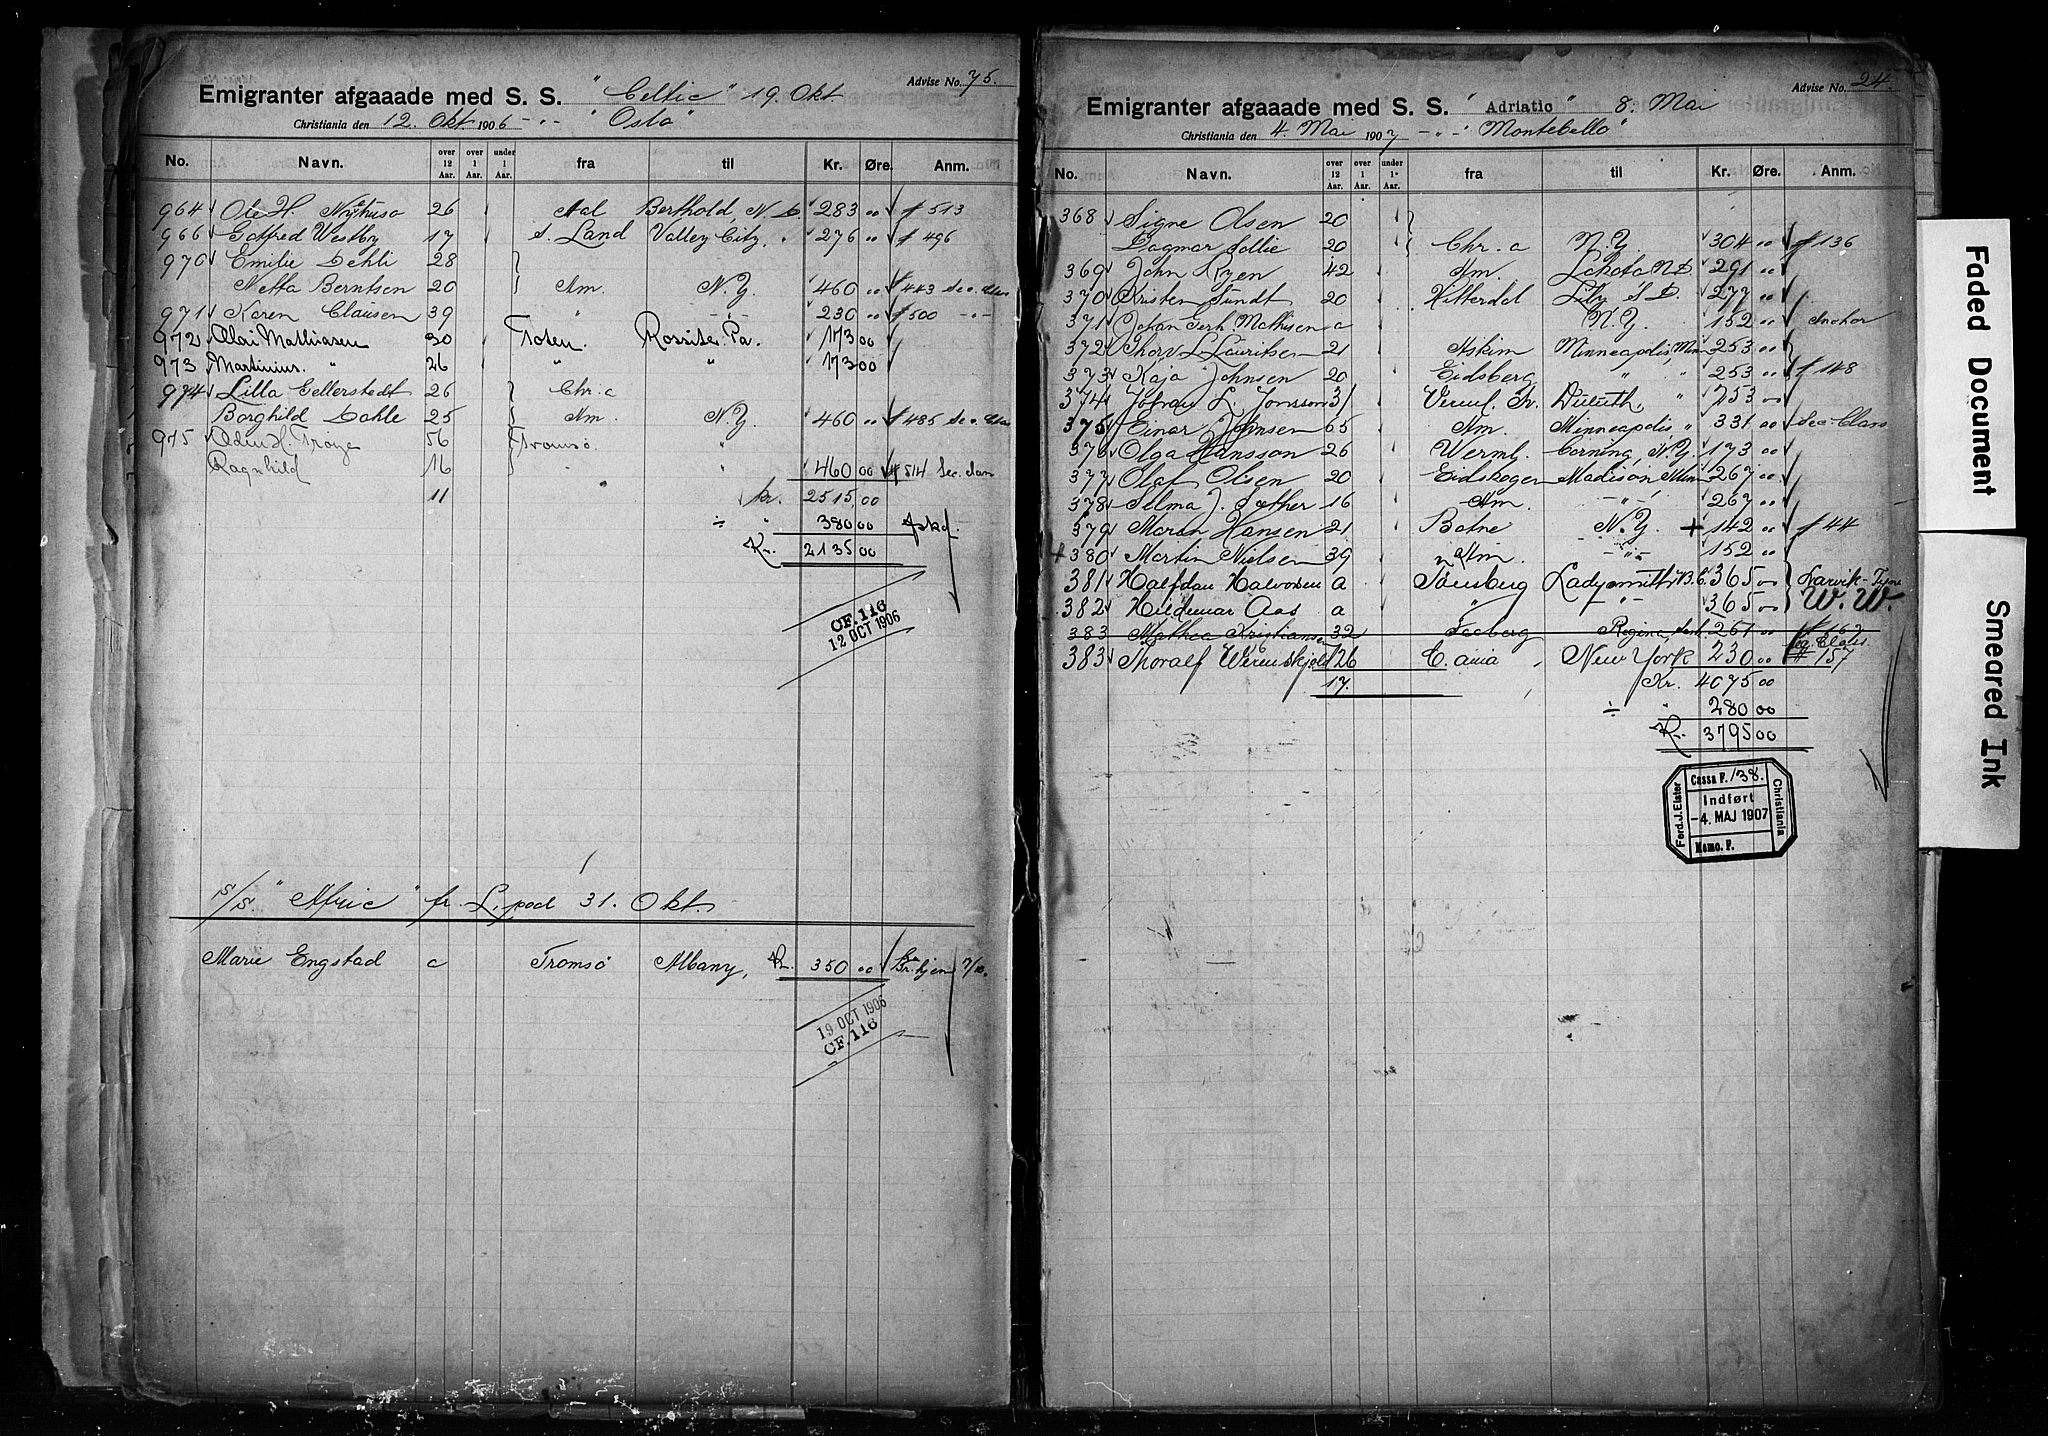 Advise No. 75.
Emigranter afgaaade med S. S. "Celtic" 19. Okt.
Christiania den 12. Okt 1906 -"- "Oslo"
No. Navn. over 12 Aar. over 1 Aar. under 1 Aar. fra til Kr. Øre. Anm.
964 Ole H. 26 Aal Berthold, N. D. 283 00 # 513
966 Gotfred Westby 17 S. Land Valley City, " 276 00 # 496
970 Emilie Dehli 28
Netta Berntsen 20 Hm. N.Y. 460 00 # 443 Sec. Class
971 Karen Clausen 39 " -"- 230 00 # 500 -"-
972 Olai Mathiasen 30 Toten. Rossiter Pa. 173 00
973 Martinius " 26 " " 173 00
974 Lilla Gellerstedt 26 Chr. a
Borghild Dahle 25 Hm. N.Y. 460 00 # 485 Sec. Class
975 Odin H. Trøye 56 Tromsø
Ragnhild 16 " " 460 00 # 514 Sec.
11 kr. 2515,00
÷ " 380 00
Kr. 2135 00
CF. 116
12 OCT 1906
S/S. "Afric" fr. L.pool 31. Okt.
Marie Engstad a Tromsø Albany, Kr. 350 00 7/10.
19 OCT 1906
CF. 116
Advise No. 24.
Emigranter afgaaade med S. S. "Adriatic" 8. Mai
Christiania den 4. Mai 1907 -"- "Montebello"
No. Navn. over 12 Aar. over 1 Aar. under 1 Aar. fra til Kr. Øre. Anm.
368 Signe Olsen 20
Dagmar Lollie 20 Chr. a N.Y. 304 00 # 136
369 John Ryen 42 Hm. Lakota N.D. 291 00
370 Kristen Sundt 20 Hitterdal Lily S.D. 277 00
371 Johan Gerh. Mathisen a N.Y. 152 00 Anchor
372 Thorv. L. Lauritsen 21 Askim Minneapolis, Minn 253 00
373 Kaja Johnsen 20 Eidsberg " " 253 00 # 148
374 L. Jonsson 31 Verml. Sv. Duluth, " 253 00
375 Einar Johnsen 65 Hm. Minneapolis " 331 00 Sec-Class
376 Olga Hansson 26 Wermb. Corning, N.Y. 173 00
377 Olaf Olsen 20 Eidskogen Madison Minn 267 00
378 Selma J. Sæther 16 Hm. -"- 267 00
379 Maran Hansen 21 Botne N.Y. + 142 00 # 44
+ 380 Martin Nielsen 39 Hm. -"- 152 00
381 Halfdan Halvorsen a Tønsberg Ladysmith B.C. 365 00 Larvik-Tyne
382 Hildemar Aas a " -"- 365 00 W. W.
383 Mathea Kristiansen 32 Regina, 261 00 # 162
383 Thoralf Werenskjold 26 C. ania New York 230 00 # 157
17. Kr. 4075 00
÷ " 280 00
Kr. 3795 00
Cassa F. 138.
Indført
-4. MAJ 1907
Memo. F.
Ferd. J. Elster
Christiania
Faded Document
Smeared Ink